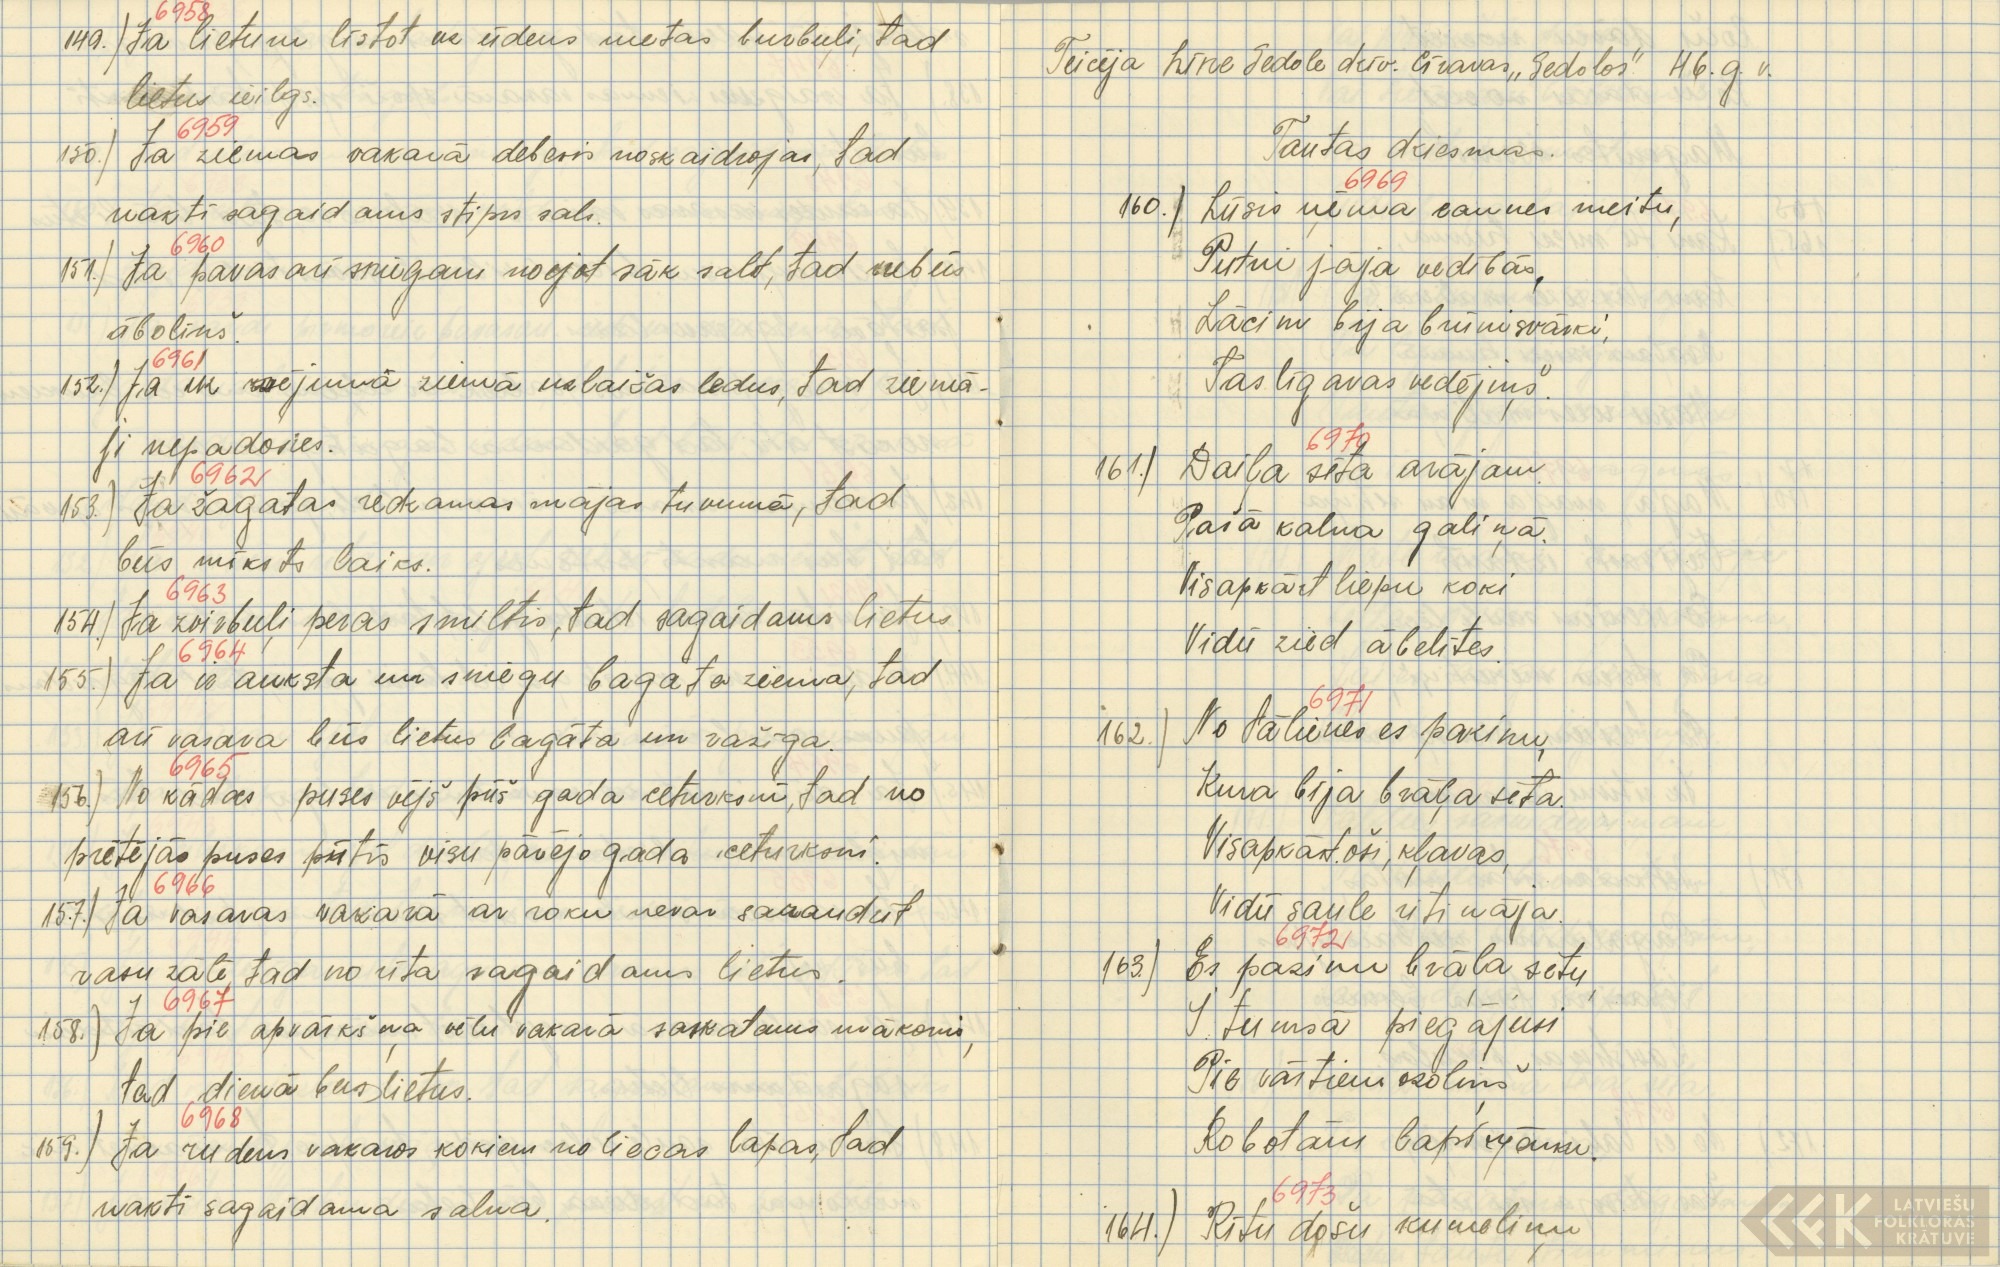 6958
149.) Ja lietum līstot uz ūdens metas burbuļi, tad
lietus ieilgs.
6959
150.) Ja ziemas vakarā debesis noskaidrojas, tad
naktī sagaidāms stiprs sals.
6960
151.) Ja pavasarī sniegam noejot sāk salt, tad nebūs
āboliņš.
6961
152.) Ja uz zemējumā ziemā uzlaišas ledus, tad ziemā-
ji nepadosies.
6962
153.) Ja žagatas redzamas mājas tuvumā, tad
būs mīksts laiks.
6963
154.) Ja zvirbuļi peras smiltīs, tad sagaidāms lietus.
6964
155.) Ja ir auksta un sniegu bagāta ziema, tad
arī vasara būs lietus bagāta un ražīga.
6965
156.) No kādas puses vējš pūš gada ceturksnī, tad no
pretējās puses pūtīs visu pārējo gada ceturksni.
6966
157.) Ja vasaras vakarā ar roku nevar sataudīt
rasu zālē, tad no rīta sagaidāms lietus.
6967
158.) Ja pie apvārkšņa vēlu vakarā saskatāms mākonis,
tad dienā būs lietus.
6968
159.) Ja rudens vakaros kokiem noliecas lapas, tad
naktī sagaidāma salna.
Teicēja Līne Ģedole dzīv. Cīravas „Ģedolos" 46. g. v.
Tautas dziesmas.
6969
160.) Lūsis ņēma caunes meitu,
Putni jāja vedībās,
Lācim bija brūni svārki,
Tas līgavas vedējiņš.
6970
161.) Daiļa sēta arājam
Pašā kalna galiņā.
Visapkārt liepu koki
Vidū zied ābelītes.
6971
162.) No tālienes es pazinu,
Kura bija brāļa sēta.
Visapkārt oši, kļavas,
Vidū saule ritināja.
6972
163.) Es pazinu brāļa sētu,
I tumsā piegājusi
Pie vārtiem ozoliņš
Robotām lapiņām.
6973
164.) Rītu došu kumeliņu
LATVIEŠU
FOLKLORAS
KRĀTUVE